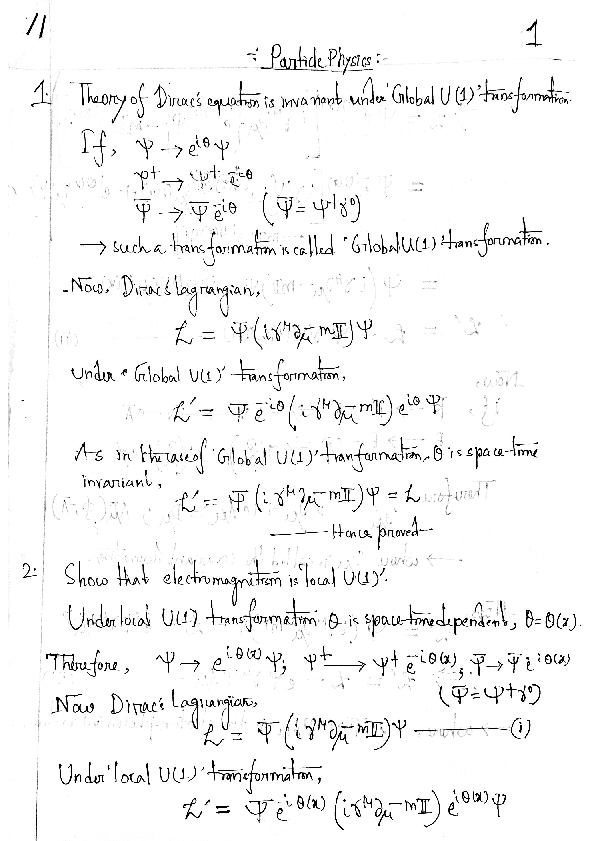 11
1
-: Particle Physics :-
1. Theory of Dirac's equation is invariant under 'Global U(1)' transformation.
If, Ψ → e^{iθ} Ψ
Ψ† → Ψ† e^{-iθ}
Ψ̄ → Ψ̄ e^{-iθ} (Ψ̄ = Ψ†γ⁰)
→ such a transformation is called 'Global U(1)' transformation.
Now, Dirac's lagrangian,
ℒ = Ψ̄ (iγ^μ ∂_μ - m𝕀) Ψ
Under 'Global U(1)' transformation,
ℒ' = Ψ̄ e^{-iθ} (iγ^μ ∂_μ - m𝕀) e^{iθ} Ψ.
As in the case of 'Global U(1)' tranformation, θ is space-time
invariant,
ℒ' = Ψ̄ (iγ^μ ∂_μ - m𝕀) Ψ = ℒ
——— Hence proved—
2. Show that electromagnetism is 'local U(1)'.
Under local U(1) transformation θ is space-time dependent, θ = θ(x).
Therefore, Ψ → e^{iθ(x)} Ψ; Ψ† → Ψ† e^{-iθ(x)}; Ψ̄ → Ψ̄ e^{-iθ(x)}
(Ψ̄ = Ψ†γ⁰)
Now Dirac's Lagrangian,
ℒ = Ψ̄ (iγ^μ ∂_μ - m𝕀) Ψ ——— (i)
Under 'local U(1)' transformation,
ℒ' = Ψ̄ e^{-iθ(x)} (iγ^μ ∂_μ - m𝕀) e^{iθ(x)} Ψ